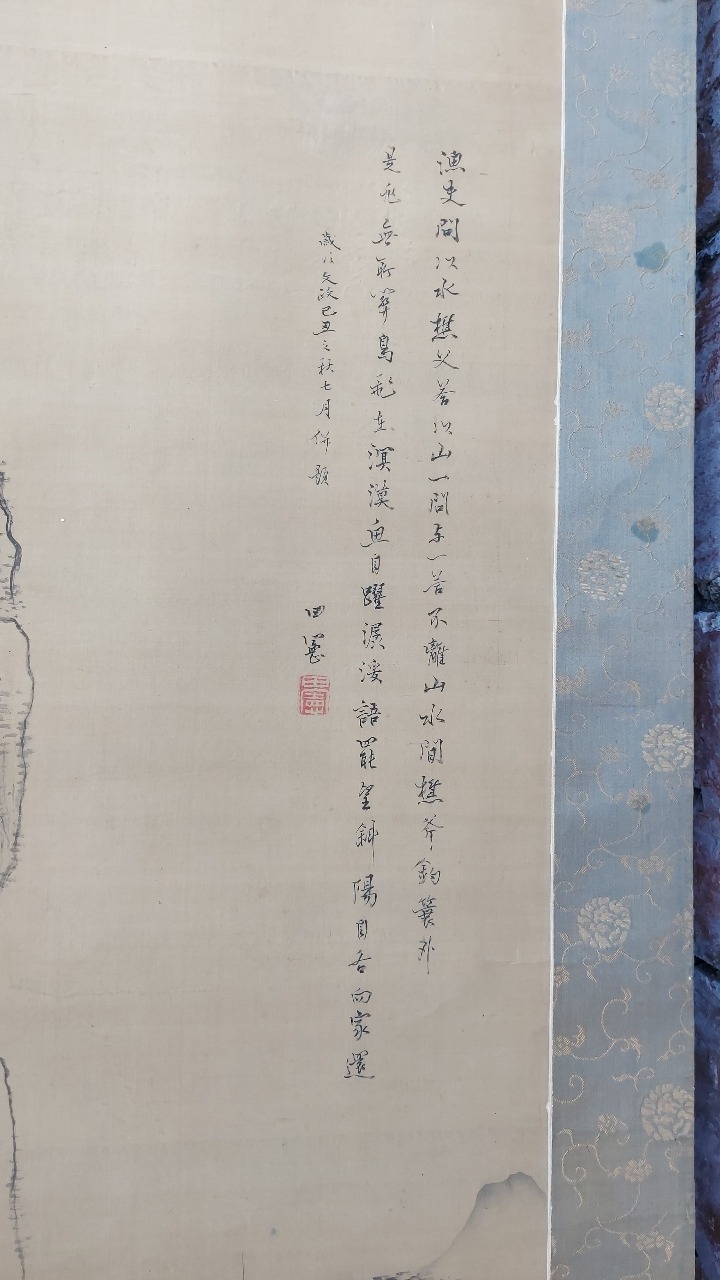 漁叟問以水樵父答以山一問与一答不離山水間樵斧釣蓑外
是非無所干鳥飛在溟漠魚自躍潺湲語罷望斜陽自各向家還
歳次文政己丑之秋七月併題
田憲